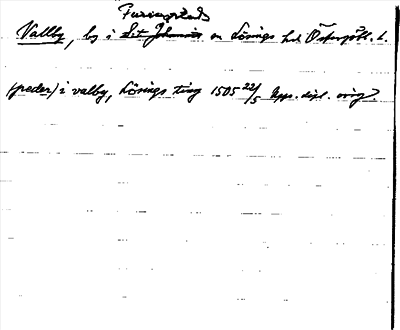 Furingstads
Vallby, by i S:t Johannis sn Lösings hd Östergötl. l.
(peder) i valby, Lösings ting 1505 22/5 Upps. dipl. orig.